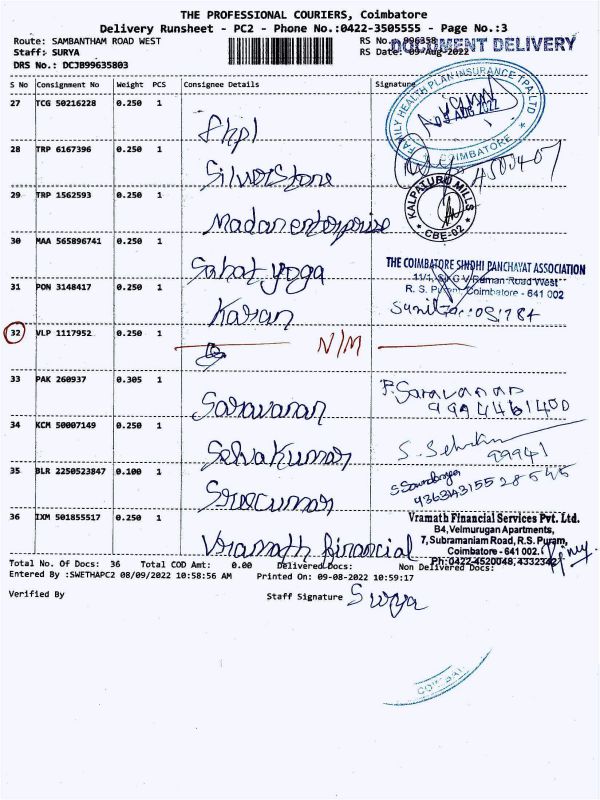 THE PROFESSIONAL COURIERS, Coimbatore
Delivery Runsheet - PC2 - Phone No.:0422-3505555 - Page No.:3
Route: SAMBANTHAM ROAD WEST RS No.: DOCUMENT DELIVERY
Staff: SURYA RS Date: 09-Aug-2022
DRS No.: DCJB99635803
S No Consignment No Weight PCS Consignee Details Signature
FAMILY HEALTH PLAN INSURANCE TPA LTD
AUG 2022
COIMBATORE
27 TCG 50216228 0.250 1
28 TRP 6167396 0.250 1 Silverstone
29 TRP 1562593 0.250 1 Madan enterprise
KALPATURU MILLS
* CBE-02 *
30 MAA 565896741 0.250 1 Sahat yoga
THE COIMBATORE SINDHI PANCHAYAT ASSOCIATION
11/1, Sir C.V. Raman Road West
R. S. Puram, Coimbatore - 641 002
31 PON 3148417 0.250 1 Karan
32 VLP 1117952 0.250 1 N/M
33 PAK 260937 0.305 1 Saravanan P. Saravanan
9994461400
34 KCM 50007149 0.250 1 Selvakumar
99941
35 BLR 2250523847 0.100 1 Sreecumar
28545
36 IXM 501855517 0.250 1 Vramath financial
Vramath Financial Services Pvt. Ltd.
B4, Velmurugan Apartments,
7, Subramaniam Road, R.S. Puram,
Coimbatore - 641 002.
Ph: 0422-4520048, 4332342
Total No. Of Docs: 36 Total COD Amt: 0.00 Delivered Docs: Non Delivered Docs:
Entered By :SWETHAPC2 08/09/2022 10:58:56 AM Printed On: 09-08-2022 10:59:17
Verified By Staff Signature Surya